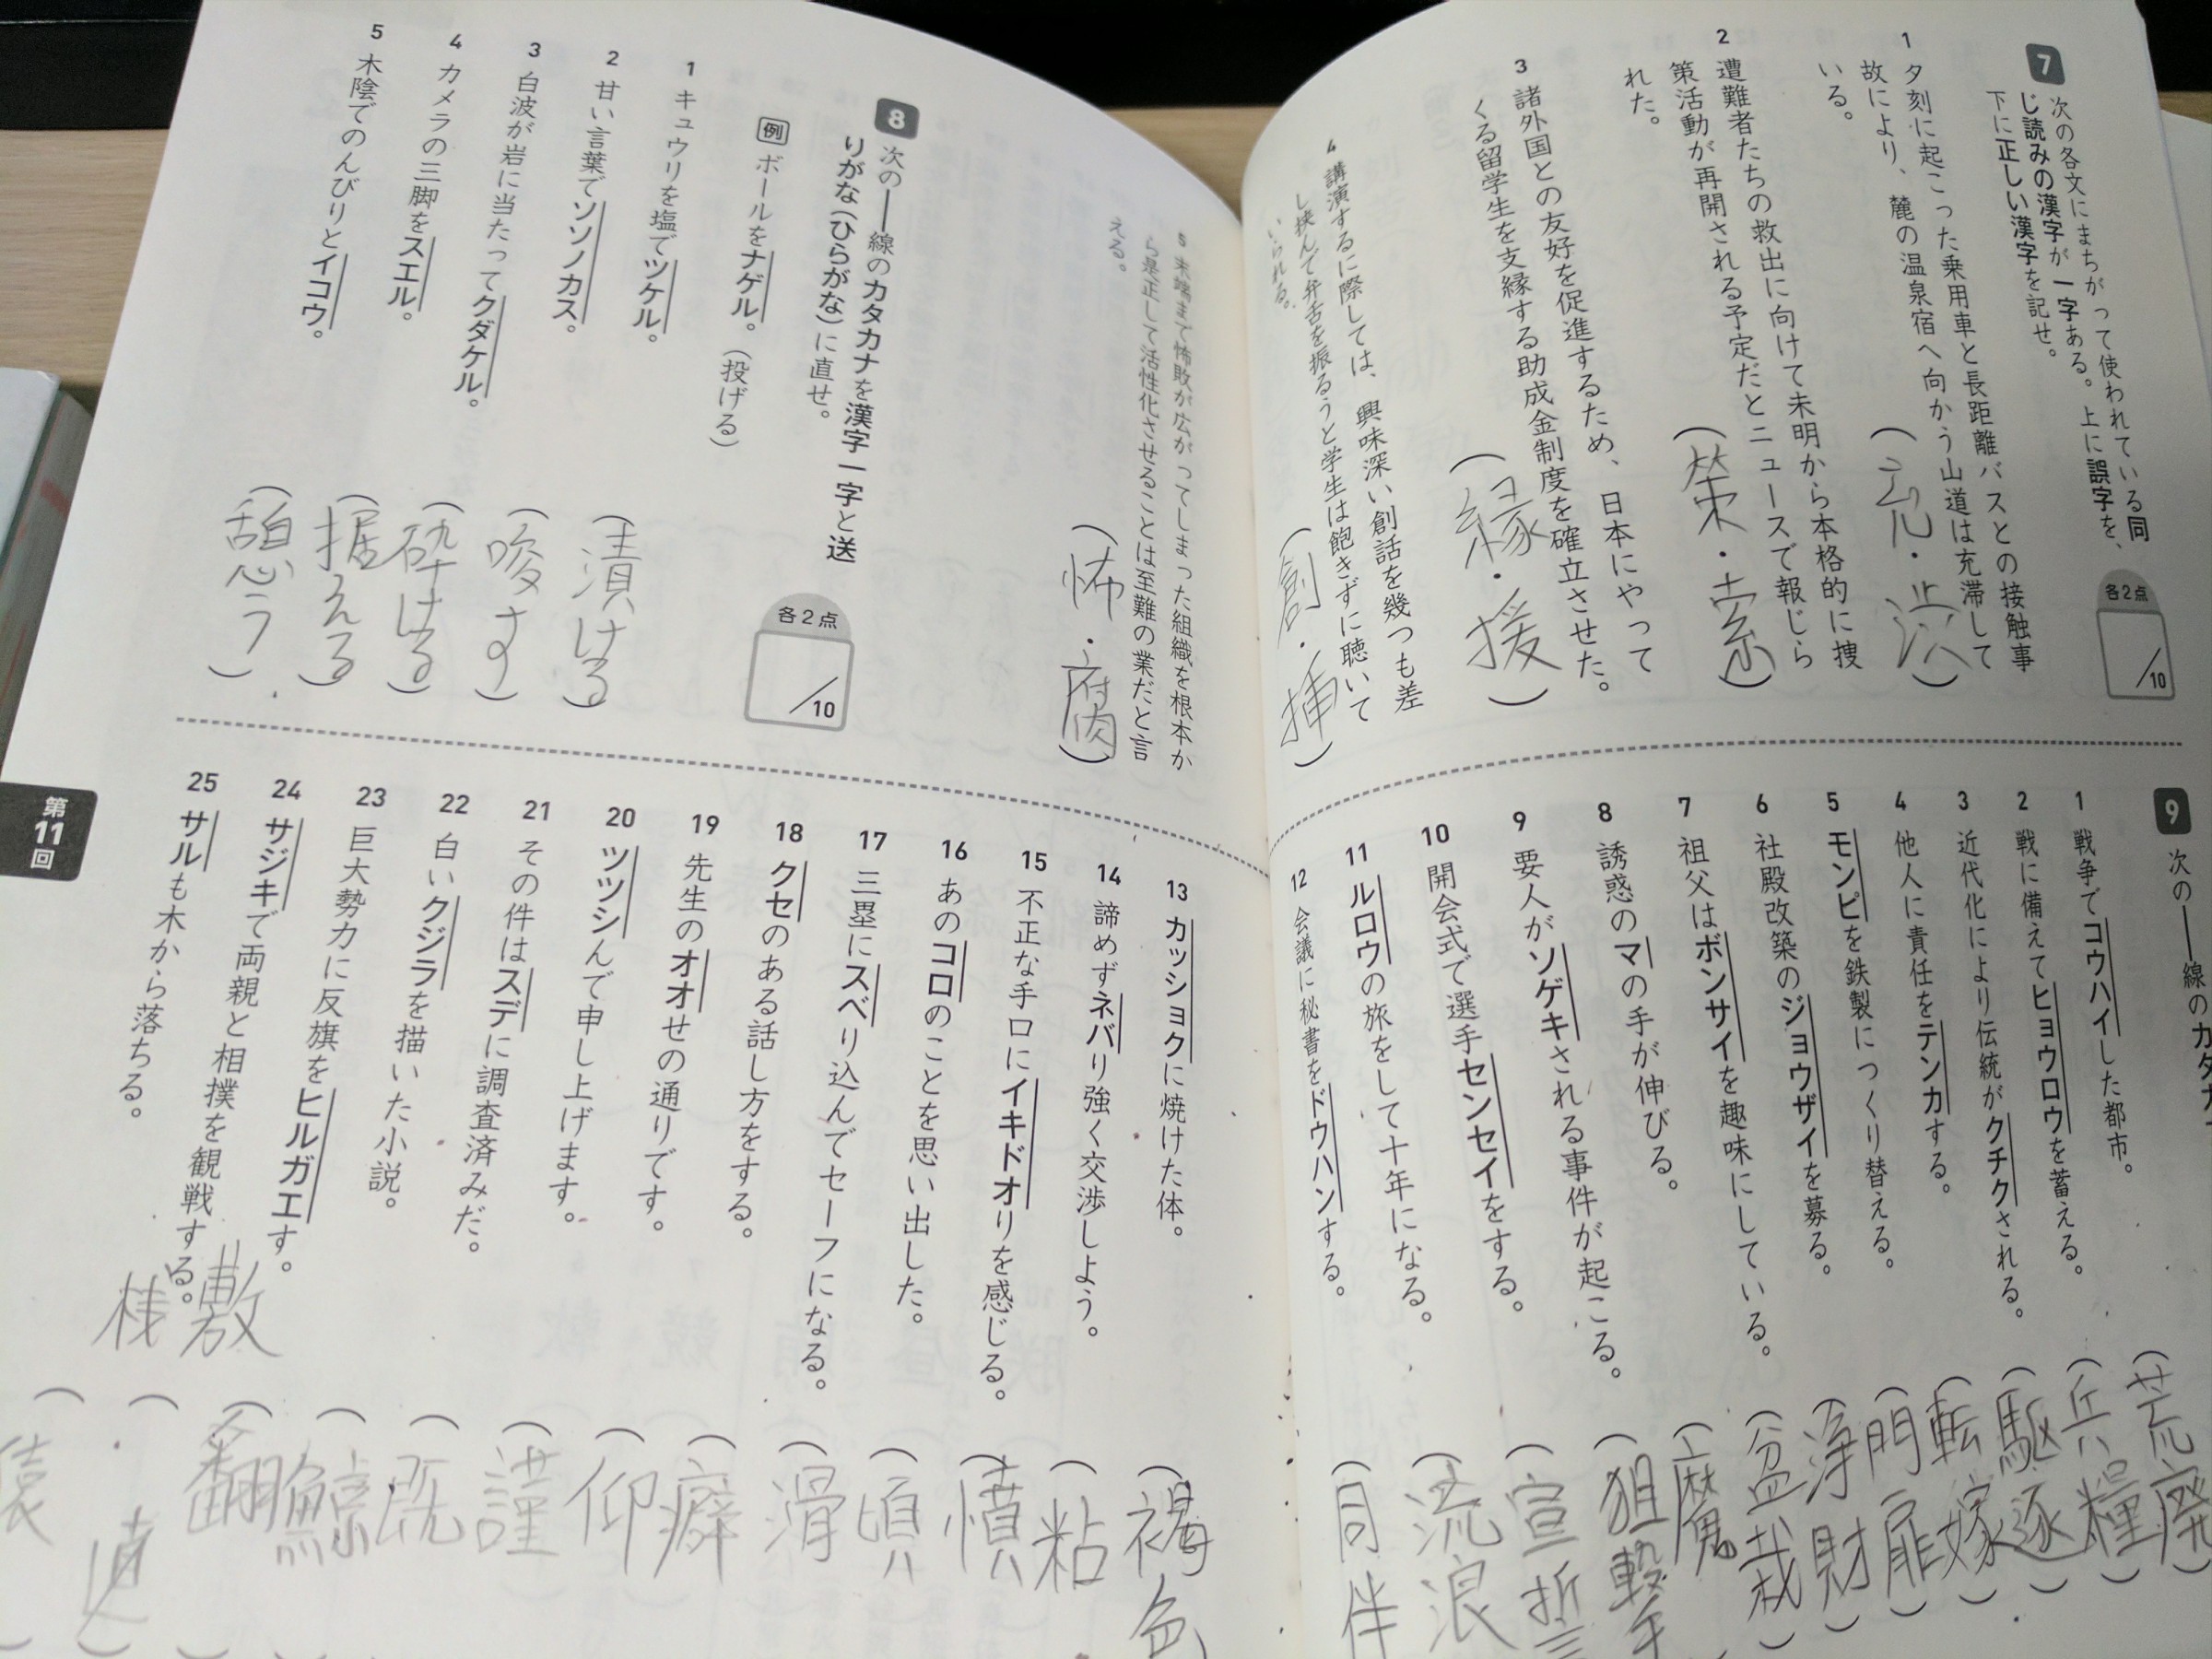 7 次の各文にまちがって使われている同
じ読みの漢字が一字ある。上に誤字を、
下に正しい漢字を記せ。
各2点
/10
1 夕刻に起こった乗用車と長距離バスとの接触事
故により、麓の温泉宿へ向かう山道は充滞して
いる。
(充・渋)
2 遭難者たちの救出に向けて未明から本格的に捜
策活動が再開される予定だとニュースで報じら
れた。
(策・索)
3 諸外国との友好を促進するため、日本にやって
くる留学生を支縁する助成金制度を確立させた。
(縁・援)
4 講演するに際しては、興味深い創話を幾つも差
し挟んで弁舌を振るうと学生は飽きずに聴いて
いられる。
(創・挿)
5 末端まで怖敗が広がってしまった組織を根本か
ら是正して活性化させることは至難の業だと言
える。
(怖・腐)
8 次の━線のカタカナを漢字一字と送
りがな(ひらがな)に直せ。
各2点
/10
例 ボールをナゲル。(投げる)
1 キュウリを塩でツケル。
(漬ける)
2 甘い言葉でソソノカス。
(唆す)
3 白波が岩に当たってクダケル。
(砕ける)
4 カメラの三脚をスエル。
(据える)
5 木陰でのんびりとイコウ。
(憩う)
9 次の━線のカタカナ
1 戦争でコウハイした都市。
(荒廃)
2 戦に備えてヒョウロウを蓄える。
(兵糧)
3 近代化により伝統がクチクされる。
(駆逐)
4 他人に責任をテンカする。
(転嫁)
5 モンピを鉄製につくり替える。
(門扉)
6 社殿改築のジョウザイを募る。
(浄財)
7 祖父はボンサイを趣味にしている。
(盆栽)
8 誘惑のマの手が伸びる。
(魔
9 要人がソゲキされる事件が起こる。
(狙撃
10 開会式で選手センセイをする。
(宣誓
11 ルロウの旅をして十年になる。
(流浪
12 会議に秘書をドウハンする。
(同伴
13 カッショクに焼けた体。
(褐色
14 諦めずネバり強く交渉しよう。
(粘
15 不正な手口にイキドオりを感じる。
(憤
16 あのコロのことを思い出した。
(頃
17 三塁にスベり込んでセーフになる。
(滑
18 クセのある話し方をする。
(癖
19 先生のオオせの通りです。
(仰
20 ツツシんで申し上げます。
(謹
21 その件はスデに調査済みだ。
(既
22 白いクジラを描いた小説。
(鯨
23 巨大勢力に反旗をヒルガエす。
(翻
24 サジキで両親と相撲を観戦する。
桟敷
25 サルも木から落ちる。
(猿
第11回